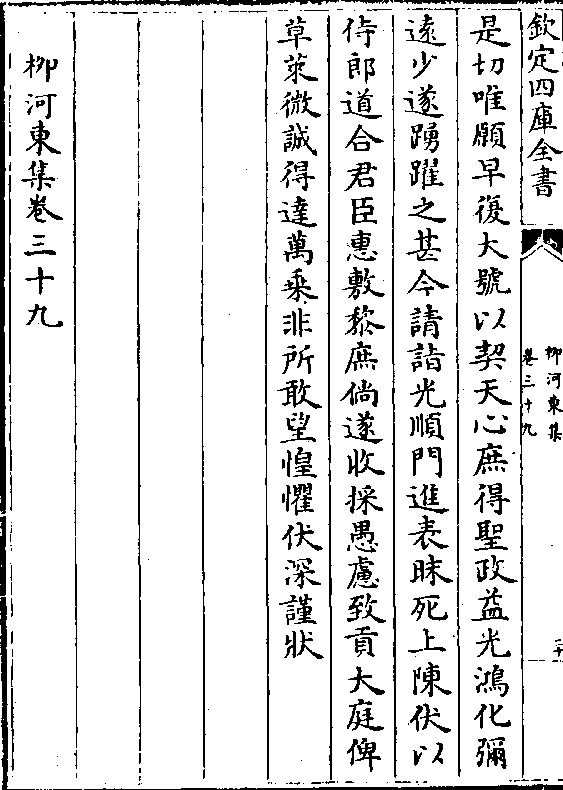 欽定四庫全書
柳河東集
卷三十九
是切唯願早復大號以契天心庶得聖政益光鴻化彌
遠少遂踴躍之甚今請詣光順門進表昧死上陳伏以
侍郎道合君臣惠敷黎庶倘遂收採愚慮致貢大庭俾
草萊微誠得達萬乘非所敢望惶懼伏深謹狀
柳河東集卷三十九